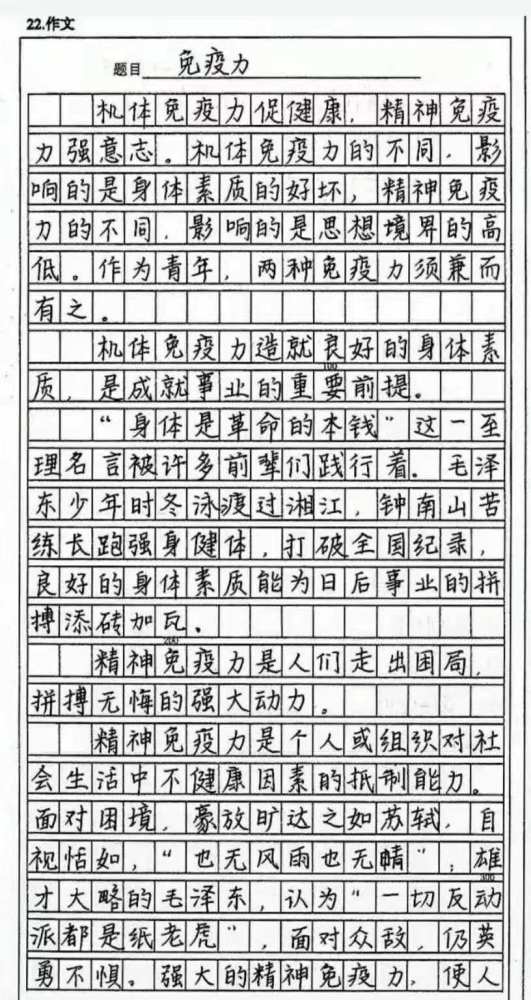 22.作文
题目 免疫力
机体免疫力促健康，精神免疫
力强意志。机体免疫力的不同，影
响的是身体素质的好坏，精神免疫
力的不同，影响的是思想境界的高
低。作为青年，两种免疫力须兼而
有之。
机体免疫力造就良好的身体素
质，是成就事业的重要前提。
100
“身体是革命的本钱”这一至
理名言被许多前辈们践行着。毛泽
东少年时冬泳渡过湘江，钟南山苦
练长跑强身健体，打破全国纪录，
良好的身体素质能为日后事业的拼
搏添砖加瓦。
200
精神免疫力是人们走出困局，
拼搏无悔的强大动力。
精神免疫力是个人或组织对社
会生活中不健康因素的抵制能力。
面对困境，豪放旷达之如苏轼，自
视恬如，“也无风雨也无晴”；雄
300
才大略的毛泽东，认为“一切反动
派都是纸老虎”，面对众敌，仍英
勇不惧。强大的精神免疫力，使人